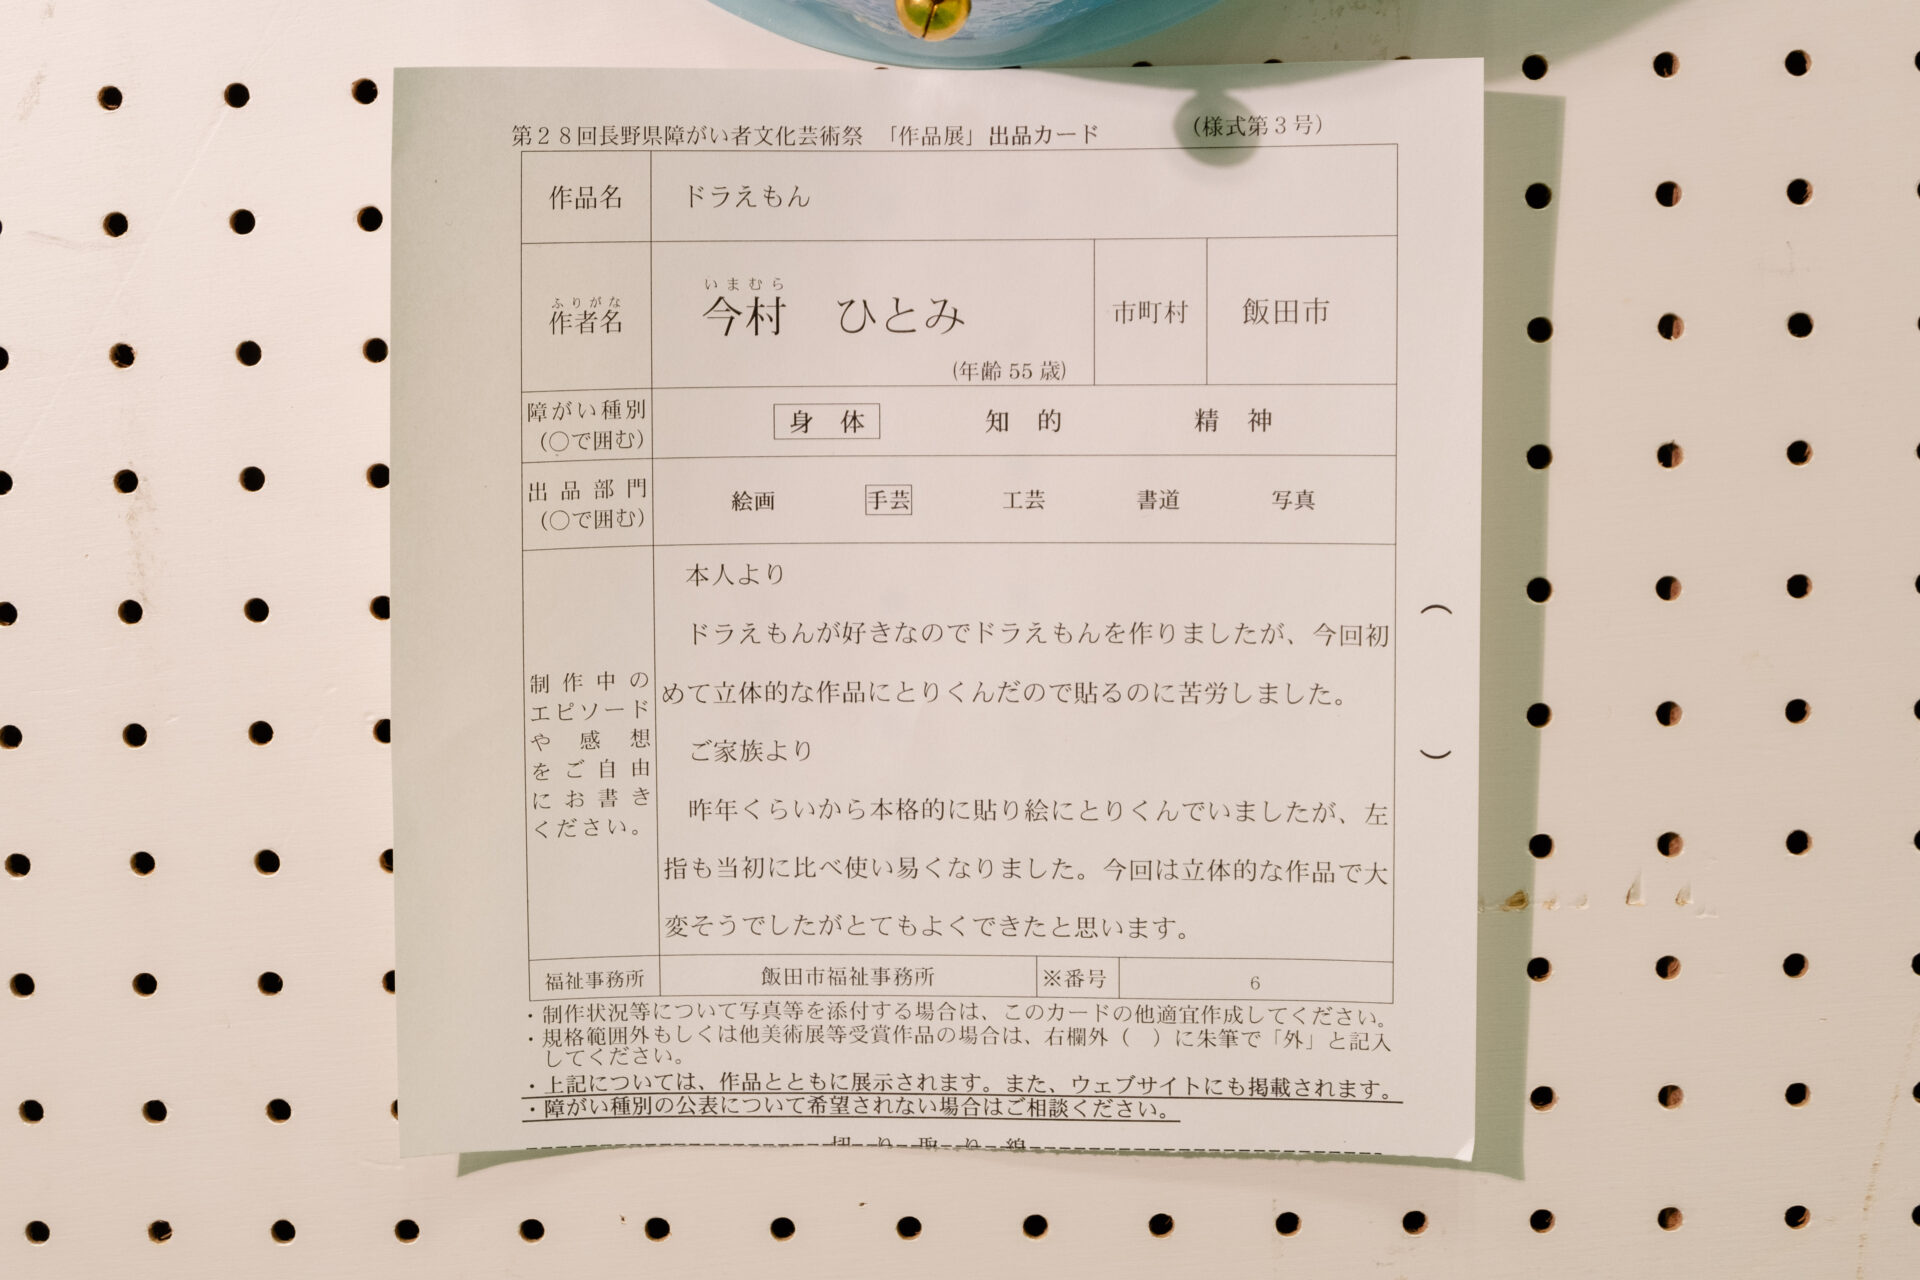 第２８回長野県障がい者文化芸術祭 「作品展」出品カード
（様式第３号）
作品名
ドラえもん
ふりがな
作者名
いまむら
今村 ひとみ
(年齢 55 歳)
市町村
飯田市
障がい種別
（○で囲む）
身 体
知 的
精 神
出品部門
（○で囲む）
絵画
手芸
工芸
書道
写真
制作中の
エピソード
や感想
をご自由
にお書き
ください。
本人より
ドラえもんが好きなのでドラえもんを作りましたが、今回初
めて立体的な作品にとりくんだので貼るのに苦労しました。
ご家族より
昨年くらいから本格的に貼り絵にとりくんでいましたが、左
指も当初に比べ使い易くなりました。今回は立体的な作品で大
変そうでしたがとてもよくできたと思います。
（ ）
福祉事務所
飯田市福祉事務所
※番号
6
・制作状況等について写真等を添付する場合は、このカードの他適宜作成してください。
・規格範囲外もしくは他美術展等受賞作品の場合は、右欄外（ ）に朱筆で「外」と記入
してください。
・上記については、作品とともに展示されます。また、ウェブサイトにも掲載されます。
・障がい種別の公表について希望されない場合はご相談ください。
切り取り線